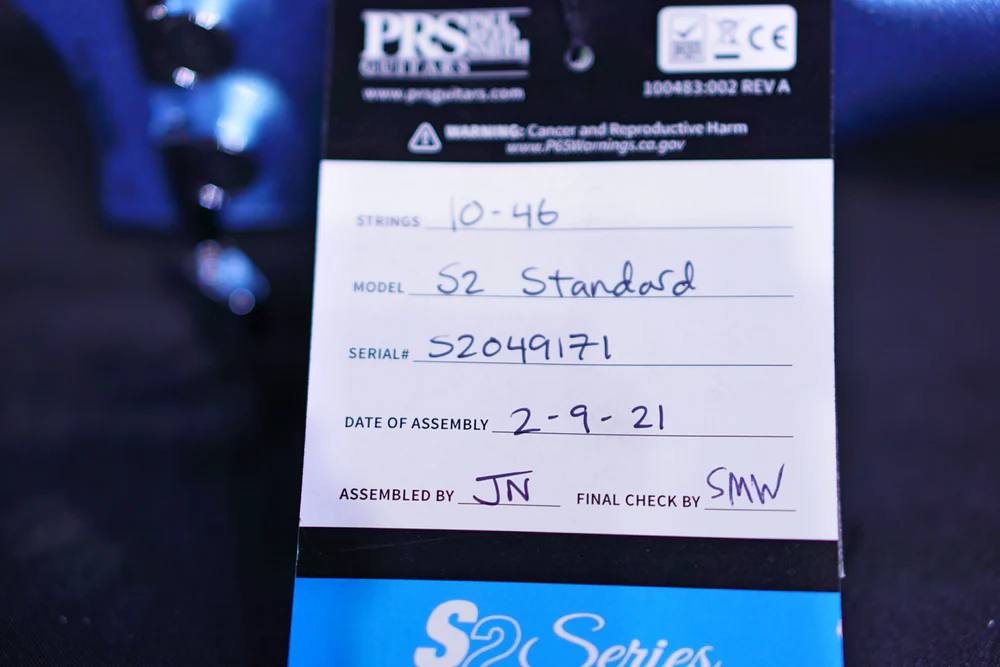 PRS PAUL REED SMITH
GUITARS
www.prsguitars.com
CE
100483:002 REV A
WARNING: Cancer and Reproductive Harm
www.P65Warnings.ca.gov
STRINGS 10-46
MODEL S2 Standard
SERIAL# S2049171
DATE OF ASSEMBLY 2-9-21
ASSEMBLED BY JN FINAL CHECK BY SMW
S2 Series